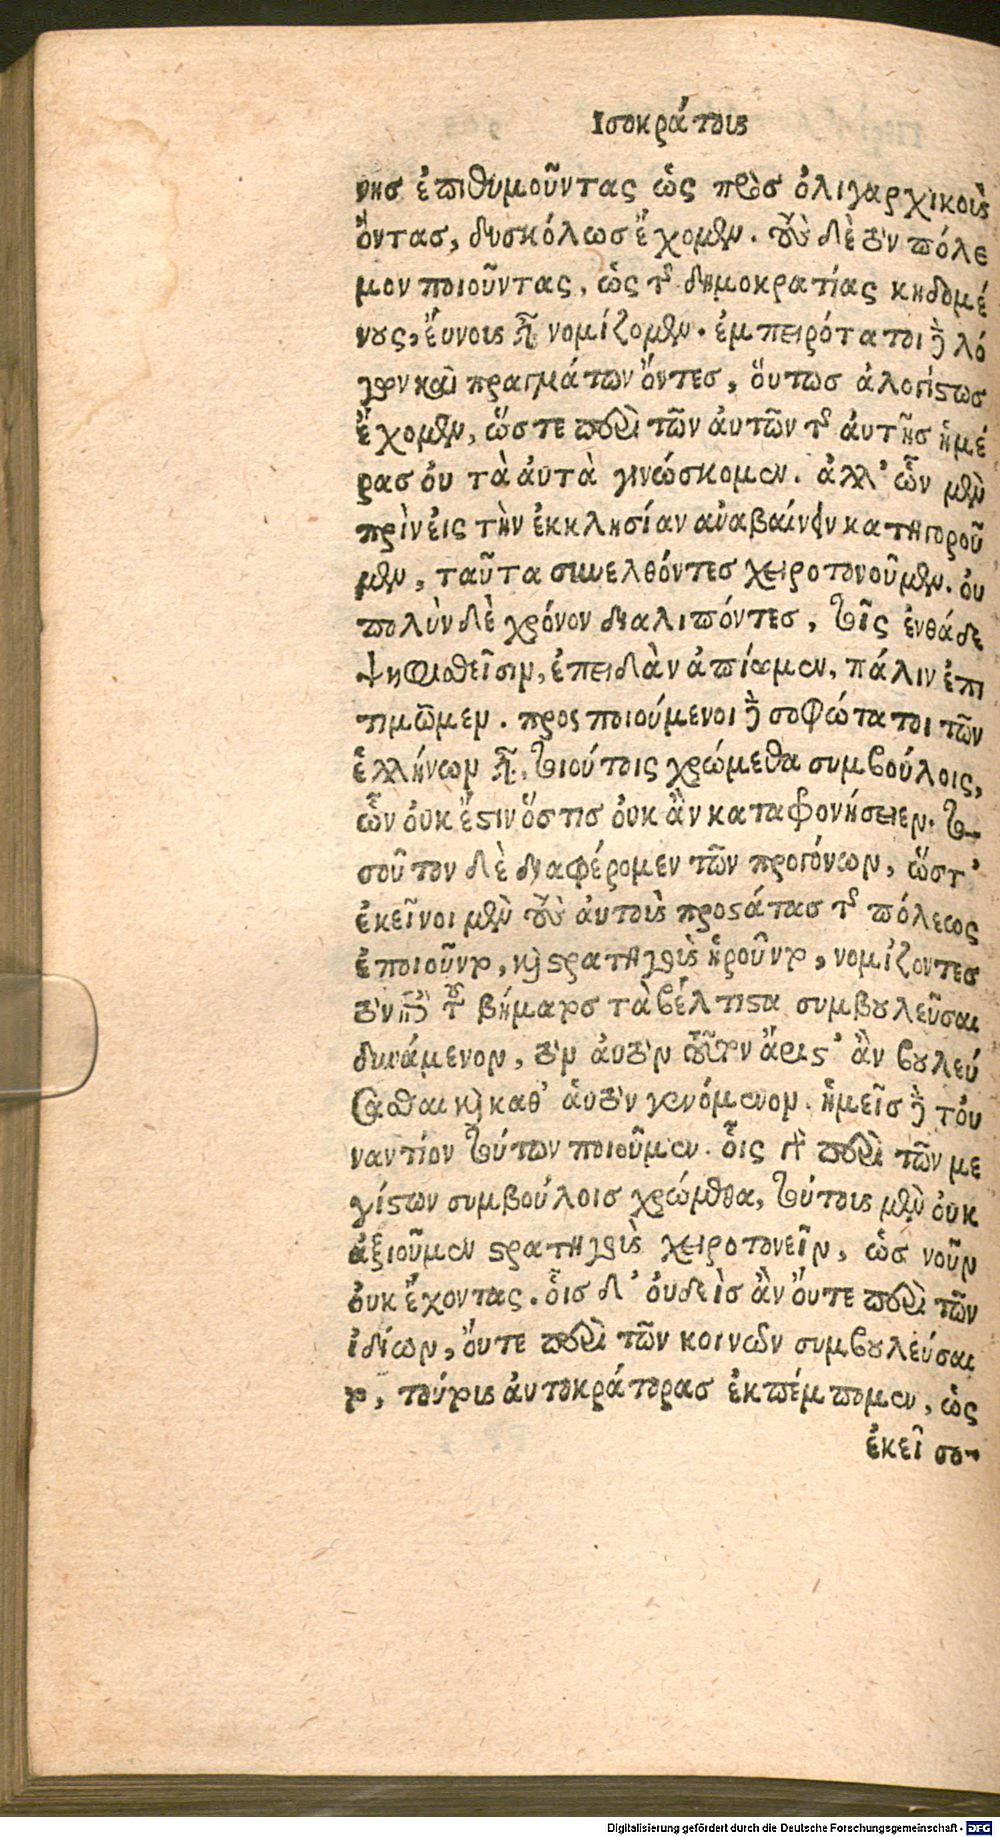 Ισοκράτους
νης ἐπιθυμοῦντας ὡς πρὸς ὀλιγαρχικοὺς
ὄντας, δυσκόλως ἔχομεν. τοὺς δὲ τὸν πόλε
μον ποιοῦντας, ὡς τῆς δημοκρατίας κηδομέ
νους, εὔνους εἶναι νομίζομεν. ἐμπειρότατοι δὲ λό
γων καὶ πραγμάτων ὄντες, οὕτως ἀλογίστως
ἔχομεν, ὥστε περὶ τῶν αὐτῶν τῆς αὐτῆς ἡμέ
ρας οὐ τὰ αὐτὰ γινώσκομεν. ἀλλ' ὧν μὲν
πρὶν εἰς τὴν ἐκκλησίαν ἀναβαίνειν κατηγοροῦ
μεν, ταῦτα συνελθόντες χειροτονοῦμεν. οὐ
πολὺν δὲ χρόνον διαλιπόντες, τοῖς ἐνθάδε
ψηφισθεῖσιν, ἐπειδὰν ἀπίωμεν, πάλιν ἐπι
τιμῶμεν. προςποιούμενοι δὲ σοφώτατοι τῶν
ἑλλήνων εἶναι, τοιούτοις χρώμεθα συμβούλοις,
ὧν οὐκ ἔστιν ὅστις οὐκ ἂν καταφονήσειεν. το-
σοῦτον δὲ διαφέρομεν τῶν προγόνων, ὥστ'
ἐκεῖνοι μὲν τοὺς αὐτοὺς προστάτας τῆς πόλεως
ἐποιοῦντο, καὶ στρατηγοὺς ᾑροῦντο, νομίζοντες
τὸν ἐπὶ τοῦ βήματος τὰ βέλτιστα συμβουλεῦσαι
δυνάμενον, τὸν αὐτὸν τοῦτον ἄριστ' ἂν βουλεύ
σασθαι καὶ καθ' αὑτὸν γενόμενον. ἡμεῖς δὲ τοὐ
ναντίον τούτων ποιοῦμεν. οἷς γὰρ περὶ τῶν με
γίστων συμβούλοις χρώμεθα, τούτους μὲν οὐκ
ἀξιοῦμεν στρατηγοὺς χειροτονεῖν, ὡς νοῦν
οὐκ ἔχοντας. οἷς δ' οὐδεὶς ἂν οὔτε περὶ τῶν
ἰδίων, οὔτε περὶ τῶν κοινῶν συμβουλεύσαι
το, τούτους αὐτοκράτορας ἐκπέμπομεν, ὡς
ἐκεῖ σο-
Digitalisierung gefördert durch die Deutsche Forschungsgemeinschaft - DFG